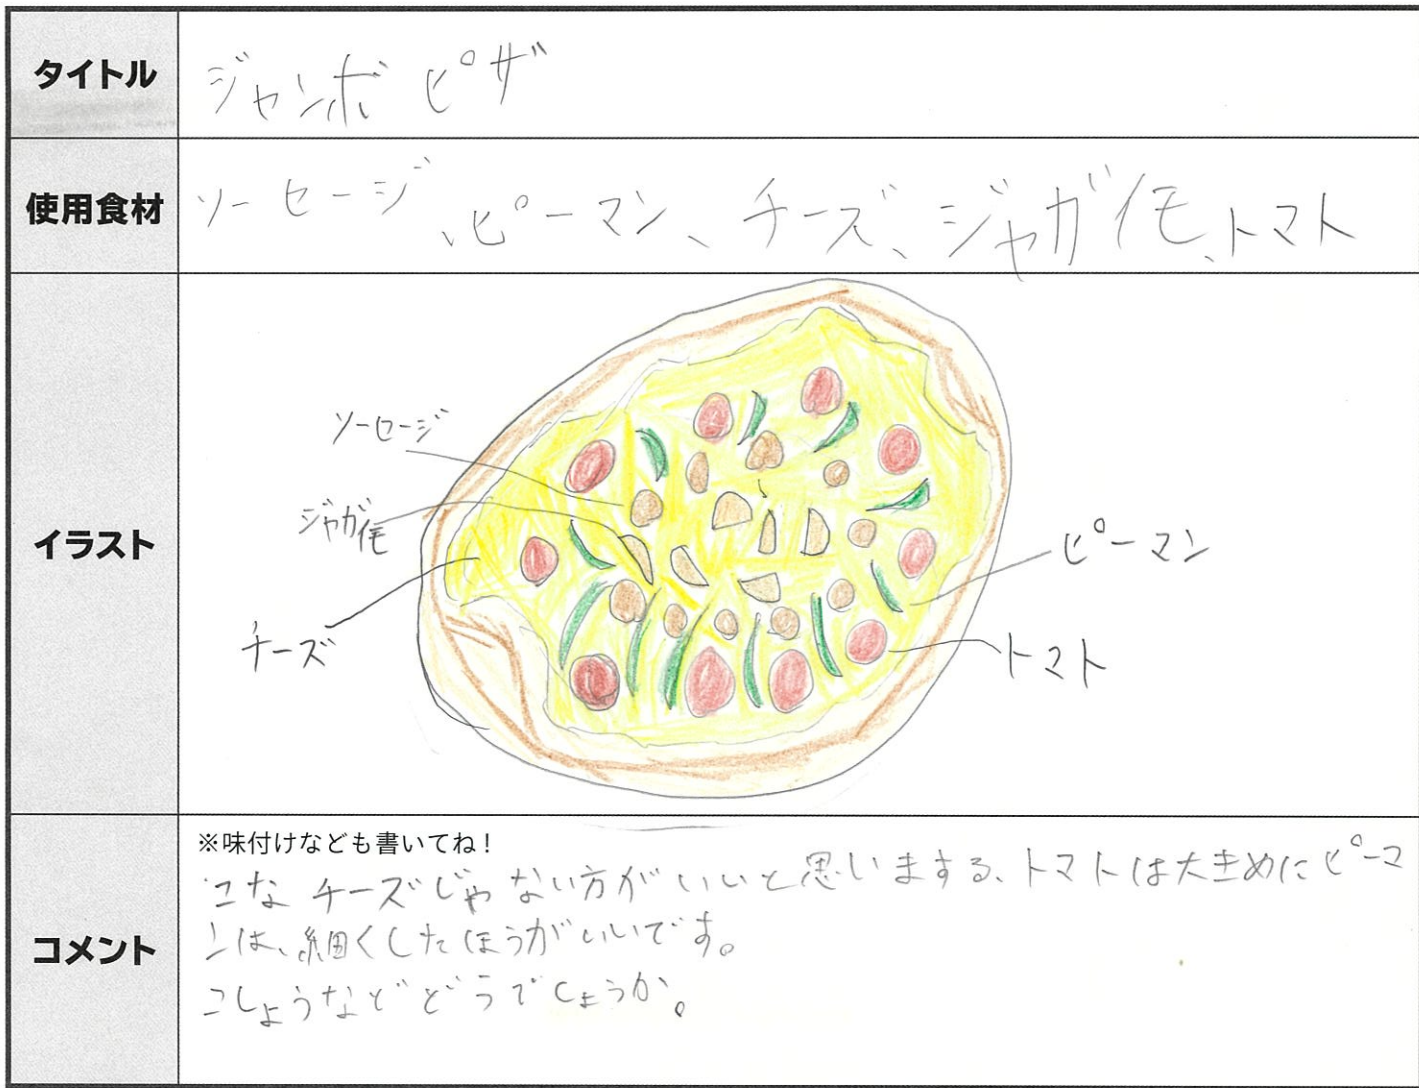 タイトル
ジャンボピザ
使用食材
ソーセージ、ピーマン、チーズ、ジャガイモ、トマト
イラスト
ソーセージ
ジャガイモ
チーズ
ピーマン
トマト
コメント
※味付けなども書いてね!
こなチーズじゃない方がいいと思いまする、トマトは大きめにピーマ
ンは、細くしたほうがいいです。
こしょうなどどうでしょうか。